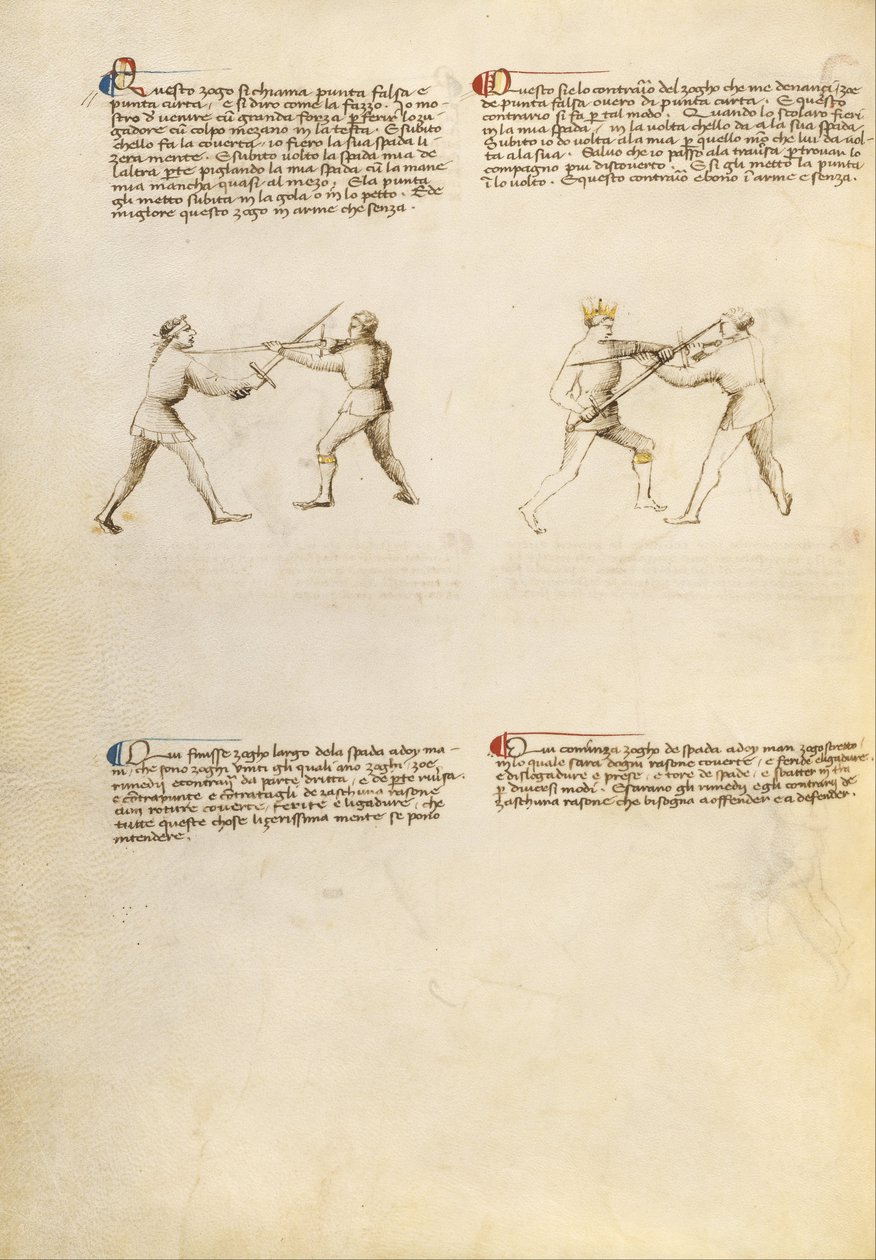 Questo zogo si chiama punta falsa e
punta curta, e si diro come la fazzo. Io mo-
stro d' venire cū granda forza p̄ ferir lo zu-
gadore cū colpo mezano in la testa. E subito
ch'ello fa la coverta io fiero la sua spada li-
zera mente. E subito volto la spada mia de
l'altra p̄te piglando la mia spada cū la mane
mia mancha quasi al mezo. E la punta
gli metto subita in la gola o in lo petto. Ed e
migliore questo zogo in arme che senza.
Questo si e lo contrario del zogho che me denançi, zoe
de punta falsa overo di punta curta. E questo
contrario si fa p̄ tal modo. Quando lo scolaro fieri
in la mia spada, in la volta ch'ello da a la sua spada
Subito io do volta a la mia p̄ quello mō che lui da vol-
ta a la sua. Salvo che io passo a la trav̄sa p̄ trovar lo
compagno piu discoverto. E si gli metto la punta
ī lo volto. E questo contrario e bono ī arme e senza.
Qui finisse zogho largo de la spada a doy ma-
ni, che sono zoghi vniti gli quali ano zoghi, zoe,
rimedii e contrarij da parte dritta, e de p̄te riv̄sa.
e cōtrapunte e cōtratagli de zaschuna rasone
cum roture coverte, ferite e ligadure, che
tutte queste chose lizerissima mente se pono
intendere.
Qui cominza zogho de spada a doy man zogo stretto,
in lo quale sara d'ogni rasone coverte, e feride e ligadure,
e dislogadure e prese, e tore de spade, e sbatter in tera
p̄ diversi modi. E sarano gli rimedii e gli contrarij de
zaschuna rasone che bisogna a offender e a defender.